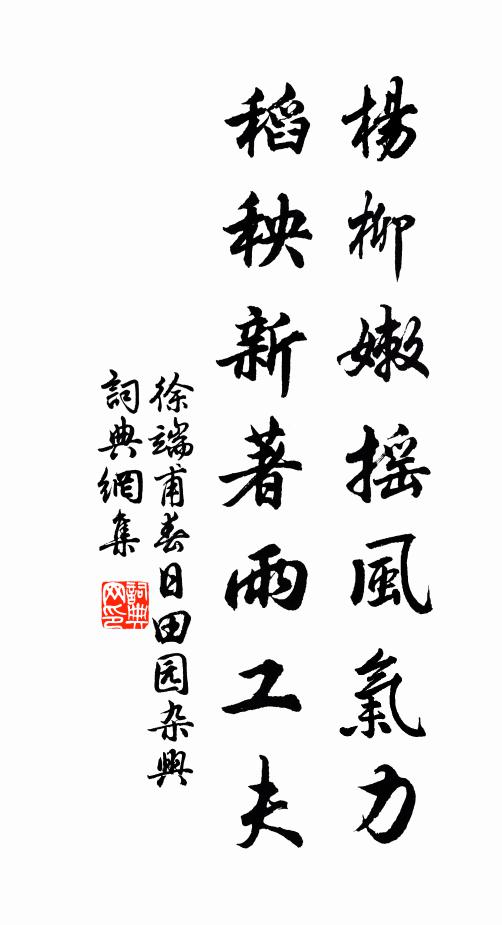 楊柳嫩摇風氣力
稻秧新著雨工夫
徐端甫春日田园杂興
詞典網集
詞典网印